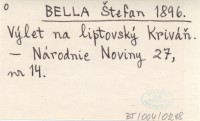 o BELLA Štefan 1896.
Výlet na liptovský Kriváň.
— Národnie Noviny 27,
nr 14.